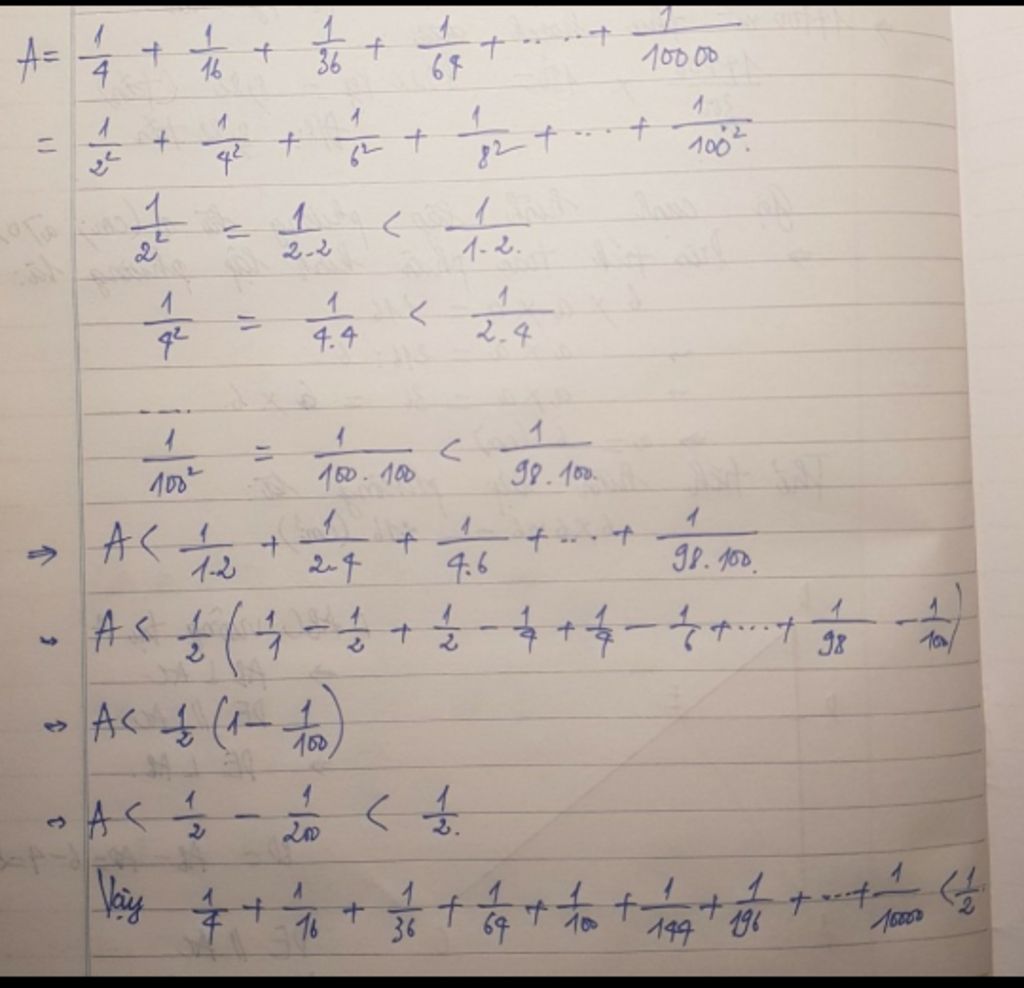 A = 1/4 + 1/16 + 1/36 + 1/64 + ..... + 1/10000
= 1/2² + 1/4² + 1/6² + 1/8² + ... + 1/100².
1/2² = 1/2.2 < 1/1.2.
1/4² = 1/4.4 < 1/2.4
....
1/100² = 1/100.100 < 1/98.100.
⇒ A < 1/1.2 + 1/2.4 + 1/4.6 + ... + 1/98.100.
⇒ A < 1/2 (1/1 - 1/2 + 1/2 - 1/4 + 1/4 - 1/6 + ... + 1/98 - 1/100)
⇒ A < 1/2 (1 - 1/100)
⇒ A < 1/2 - 1/200 < 1/2.
Vậy 1/4 + 1/16 + 1/36 + 1/64 + 1/100 + 1/144 + 1/196 + ... + 1/10000 < 1/2.